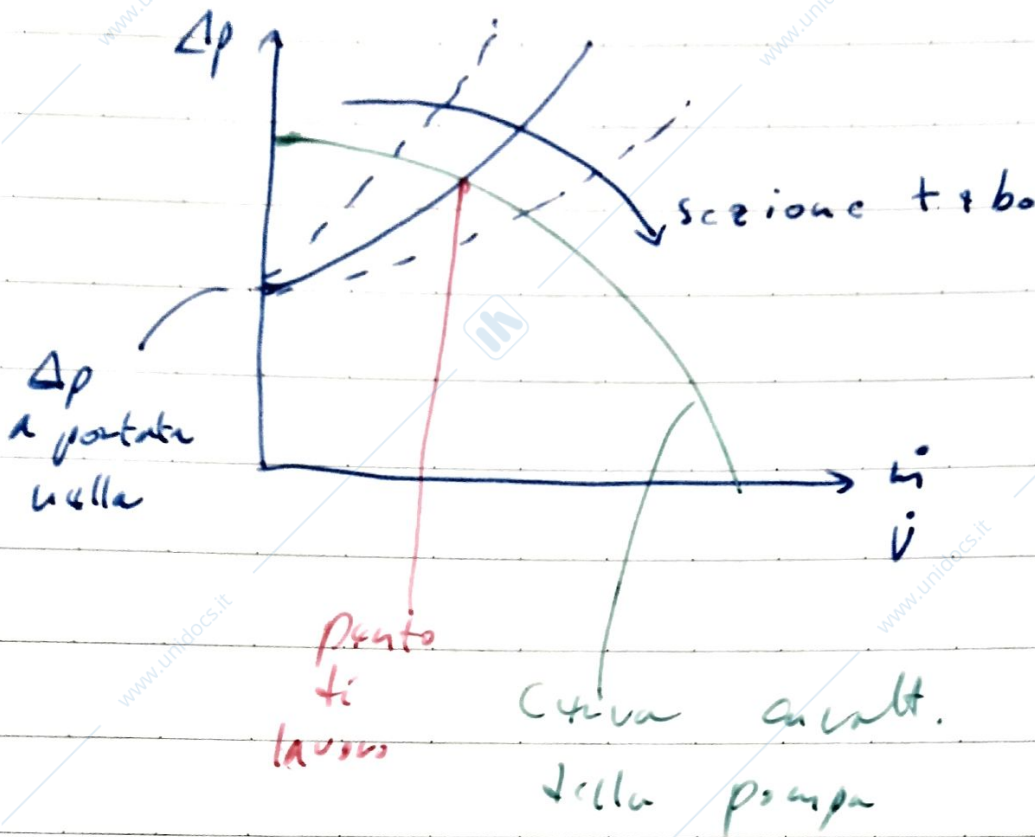 Δp
sezione tubo
Δp
a portata
nulla
ṁ
V̇
punto
di
lavoro
Curva caratt.
della pompa
www.unidocs.it
www.unidocs.it